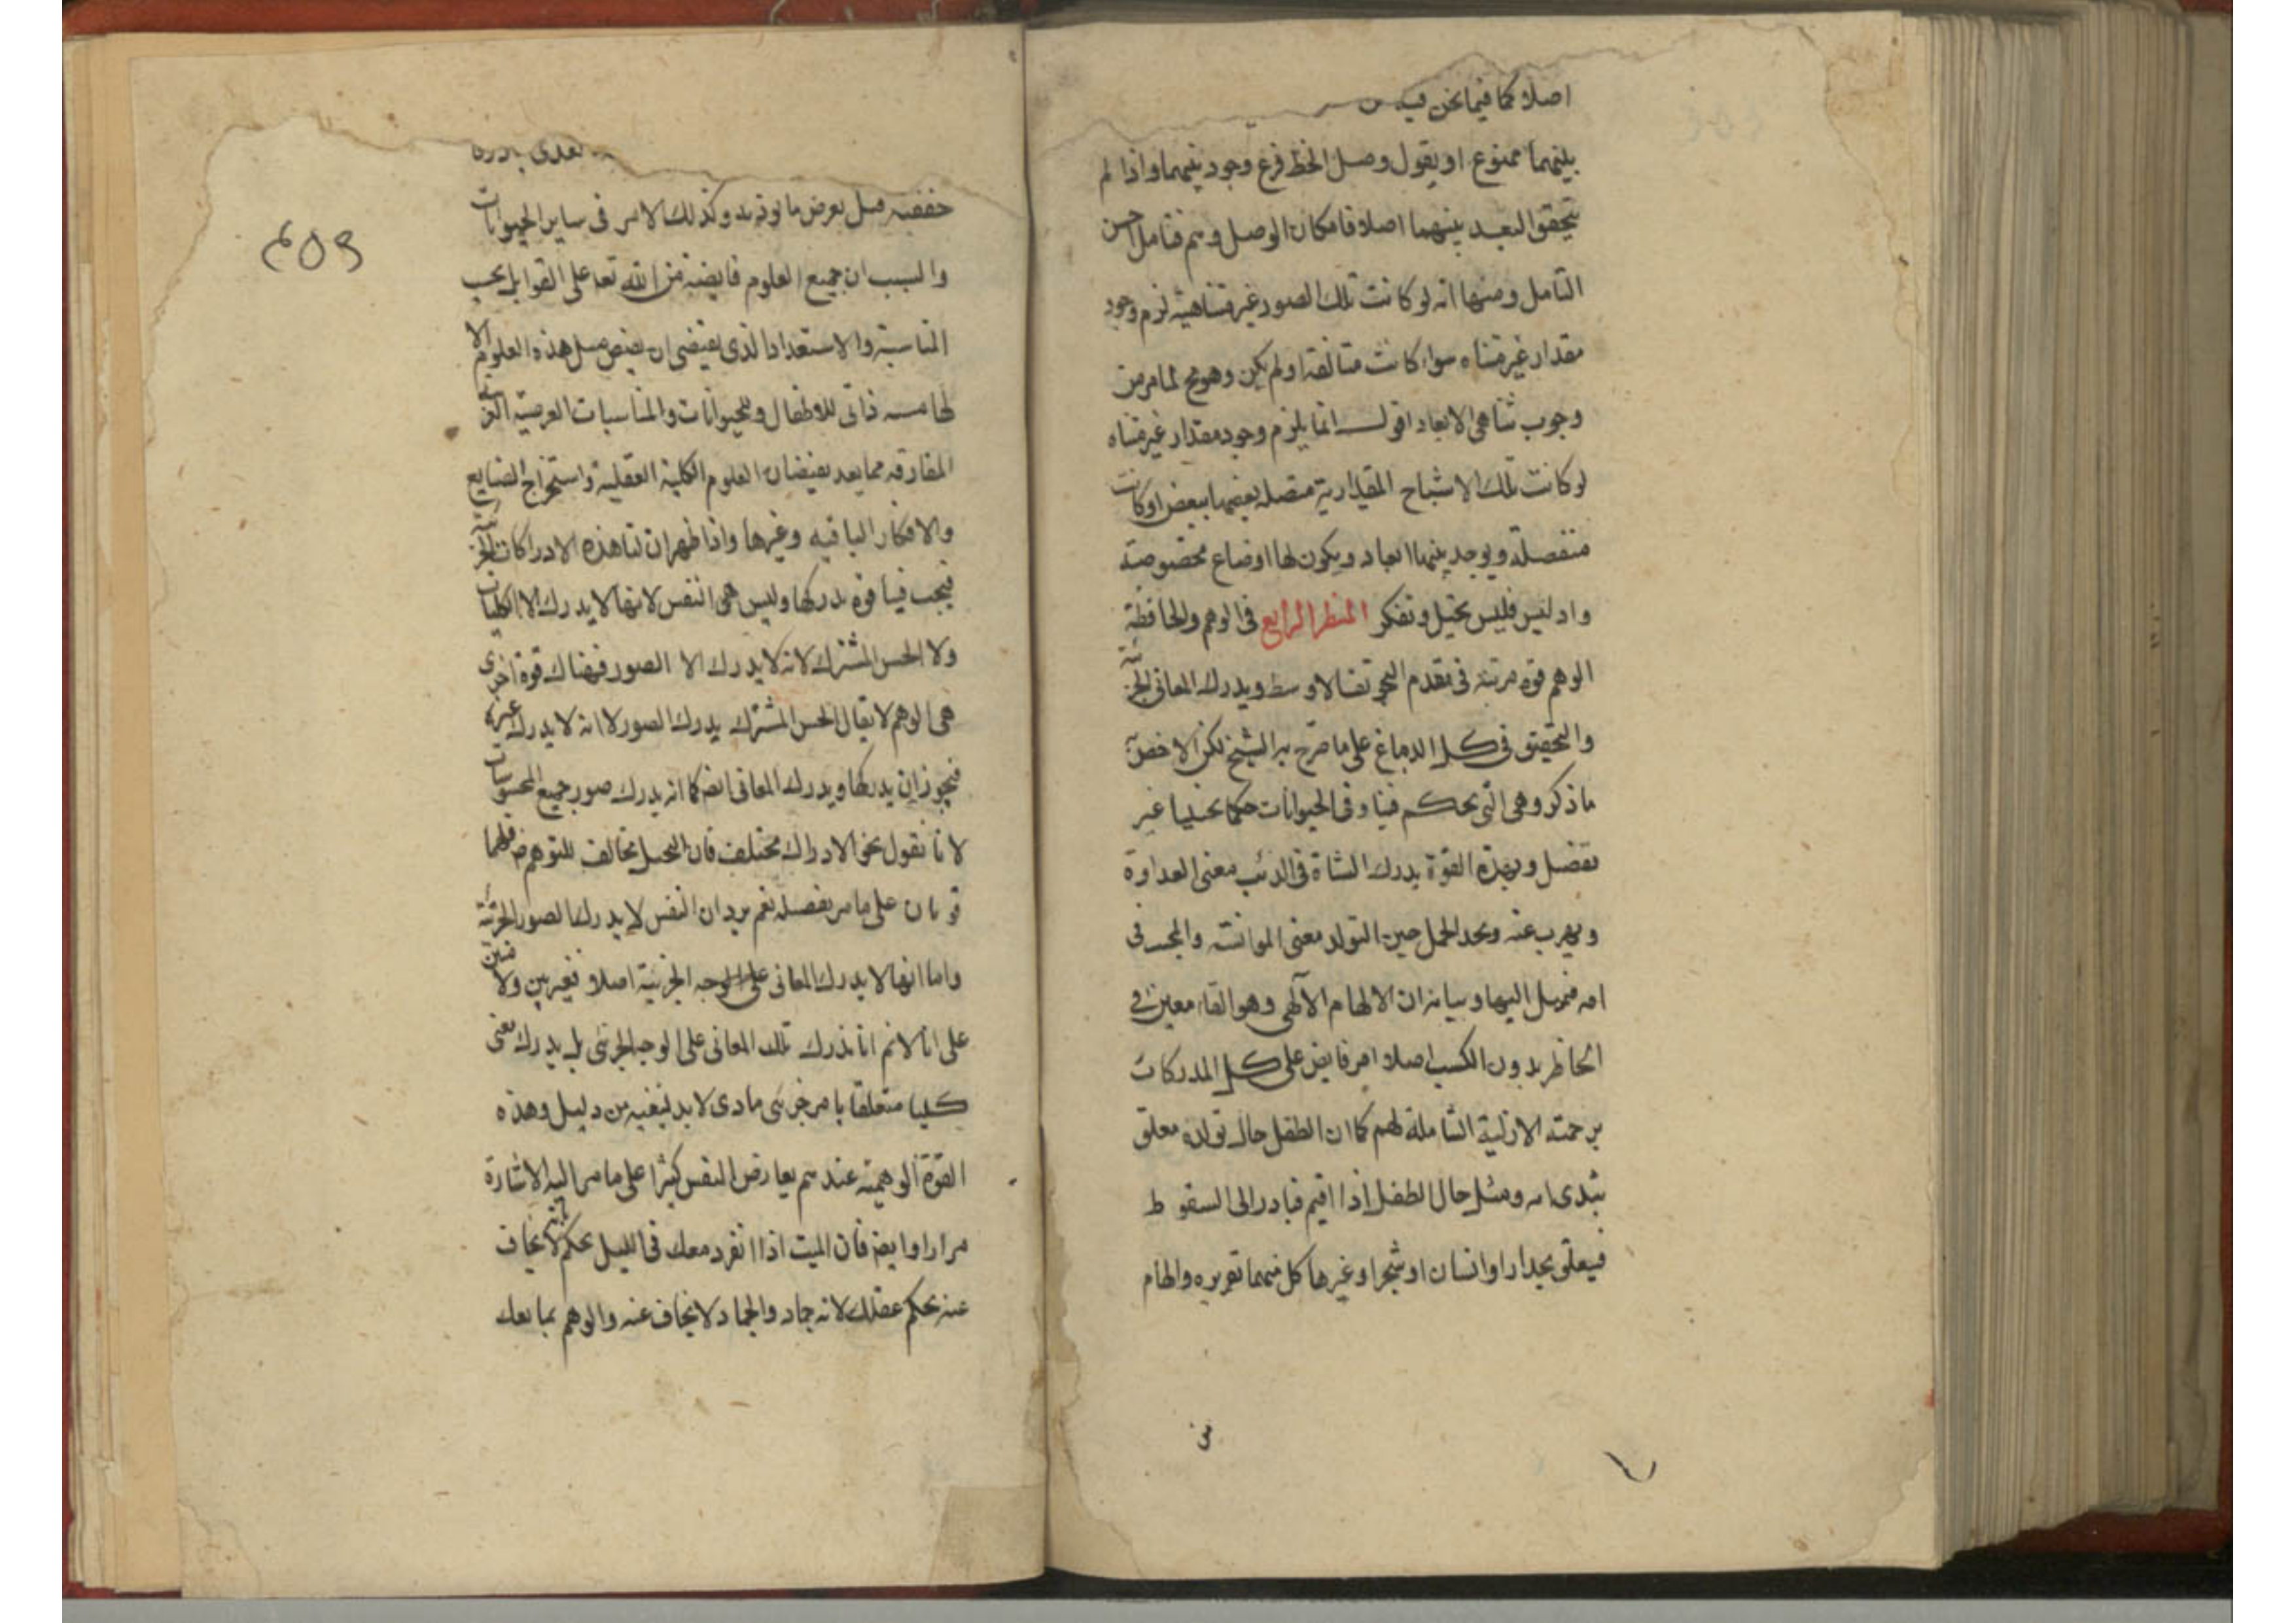 اصلا كما فيما نحن فيه
بينهما ممنوع او يقول وصل الخط فرع وجود بينهما واذا لم
يتحقق البعد بينهما اصلا فامكان الوصل وهم فتامل احسن
التامل ومنها انه لو كانت تلك الصور غير متناهية لزم وجود
مقدار غير متناه سواء كانت متالفة او لم يكن وهو مح لما مر من
وجوب تناهى الابعاد اقول انما يلزم وجود مقدار غير متناه
لو كانت تلك الاشباح المقدارية متصلة بعضها ببعض او كانت
منفصلة ويوجد بينها ابعاد ويكون لها اوضاع مخصوصة
واد ليس فليس تخيل وتفكر المنظر الرابع فى الوهم والحافظة
الوهم قوة مرتبة فى مقدم التجويف الاوسط ويدرك المعانى الجزئية
والتحقيق فى كل الدماغ على ما صرح به الشيخ لكن الاخص به
ما ذكر وهى التى يحكم فينا وفى الحيوانات حكما تخيليا غير
تفصل وبهذه القوة يدرك الشاة فى الذئب معنى العداوة
ويهرب عنه ويجد الحمل حين التولد معنى الموانسة والمحبة فى
امه فيميل اليها وبيانه ان الالهام الآلهى وهو القاء معين فى
الخاطر بدون الكسب اصلا امر فايض على كل المدركات
برحمته الازلية الشاملة لهم كما ان الطفل حال تولده معلق
بثدى امه ومثل حال الطفل اذا اقيم فبادر الى السقوط
فيعلق بجدار او انسان او شجر او غيرها كل منهما تقريره والهام
من
بادره
٤٥٩
خففيه قبل يعرض ما يوذيه وكذلك الامر فى ساير الحيوانات
والسبب ان جميع العلوم فايضة من الله تعا على القوابل بحسب
المناسبة والاستعداد الذى يقتضى ان يفيض مثل هذه العلوم الا
لهامية ذاتى للاطفال وللحيوانات والمناسبات العرضية
المفارقة مما يعد بفيضان العلوم الكلية العقلية واستخراج الصنايع
والافكار الباقية وغيرها واذا ظهر ان لنا هذه الادراكات الجزئية
فيجب فينا قوة يدركها وليس هى النفس لانها لا يدرك الا الكليات
ولا الحس المشترك لانه لا يدرك الا الصور فهناك قوة اخرى
هى الوهم لا يقال الحس المشترك يدرك الصور لا انه لا يدرك غيره
فيجوز ان يدركها ويدرك المعانى ايضا كما انه يدرك صور جميع المحسوسات
لانا نقول نحو الادراك مختلف فان التخيل مخالف للتوهم فلهما
قوتان على ما مر بفصله نعم يرد ان النفس لا يدرك الصور الجزئية
واما انها لا يدرك المعانى على الوجه الجزئية اصلا فغير بين ولا مبين
على انا لانم انا ندرك تلك المعانى على الوجه الجزئى بل يدرك معنى
كليا متعلقا بامر جزئى مادى لا بد لنفيه من دليل وهذه
القوة الوهمية عندهم يعارض النفس كثيرا على ما مر اليه الاشارة
مرارا وايضا فان الميت اذا انفرد معك فى الليل يحكم بانه لا يخاف
عنه بحكم عقلك لانه جماد والجماد لا يخاف عنه والوهم يمانعك